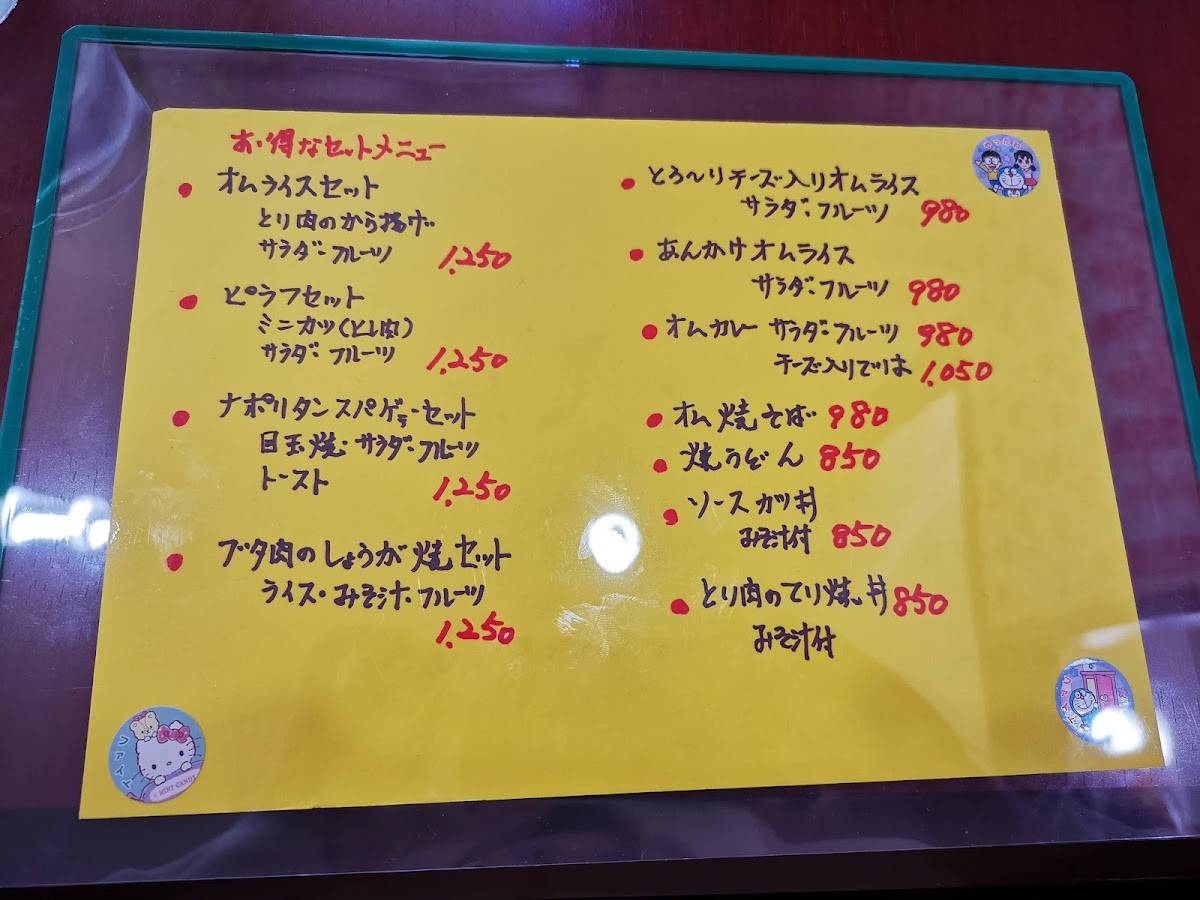 お得なセットメニュー
オムライスセット
とり肉のから揚げ
サラダ・フルーツ 1,250
ピラフセット
ミニカツ(とり肉)
サラダ・フルーツ 1,250
ナポリタンスパゲティーセット
目玉焼・サラダ・フルーツ
トースト 1,250
ブタ肉のしょうが焼セット
ライス・みそ汁・フルーツ
1,250
とろ〜りチーズ入りオムライス
サラダ・フルーツ 980
あんかけオムライス
サラダ・フルーツ 980
オムカレー サラダ・フルーツ 980
チーズ入りでは 1,050
オム焼そば 980
焼うどん 850
ソースカツ丼
みそ汁付 850
とり肉のてり焼丼 850
みそ汁付
ファイト